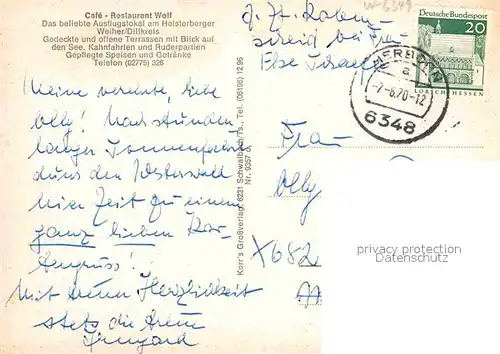 Café - Restaurant Wolf
Das beliebte Ausflugslokal am Heisterberger
Weiher/Dillkreis
Gedeckte und offene Terrassen mit Blick auf
den See. Kahnfahrten und Ruderpartien
Gepflegte Speisen und Getränke
Telefon (02775) 326
Meine verehrte, liebe
Olly! Nach stunden-
langer Sonnenfahrt
durch den Westerwald
hier Zeit zu einem
ganz lieben Kar-
tengruss!
Mit Herzlichkeit
stets die
Irmgard
Korr's Großverlag, 6231 Schwalbach/Ts., Tel. (06196) 12 96
Nr. 9357 d
z. Zt.
bei Frau
Else
Frau
Olly
X682
W-6349
HERBORN
a
-7.-6.70-12
6348
Deutsche Bundespost
20
LORSCH/HESSEN
privacy protection
Datenschutz